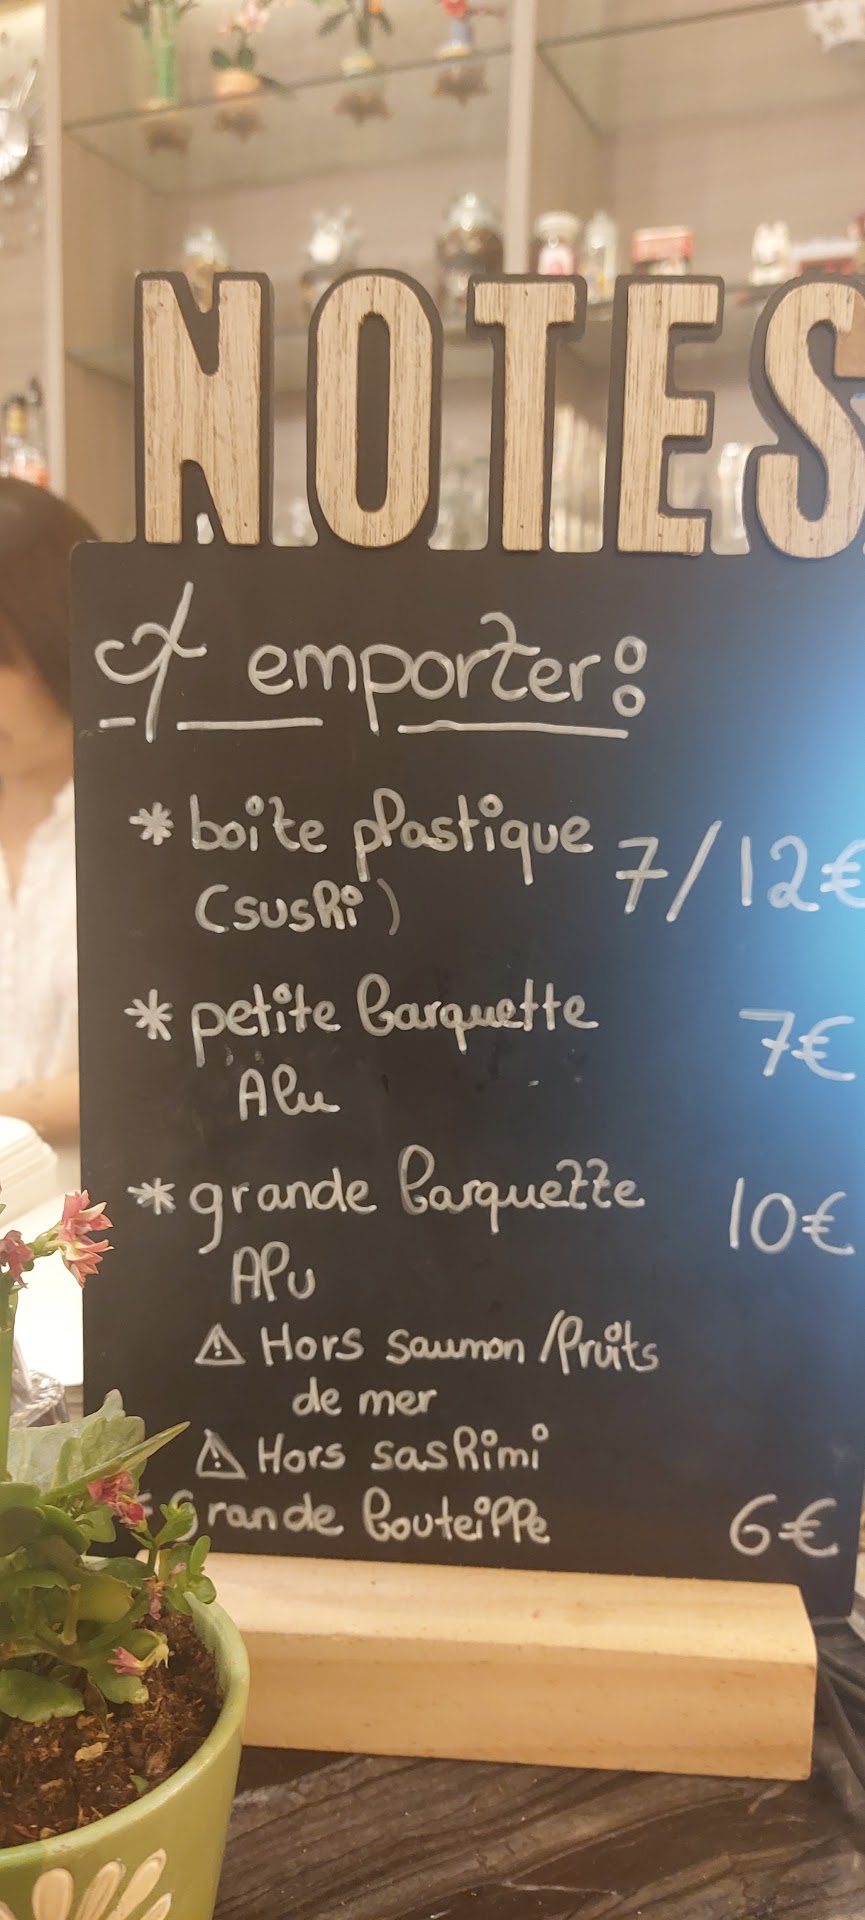 NOTES
A emporter:
* boite plastique 7/12€
(sushi)
* petite barquette 7€
Alu
* grande barquette 10€
Alu
⚠ Hors saumon/fruits
de mer
⚠ Hors sashimi
* Grande bouteille 6€